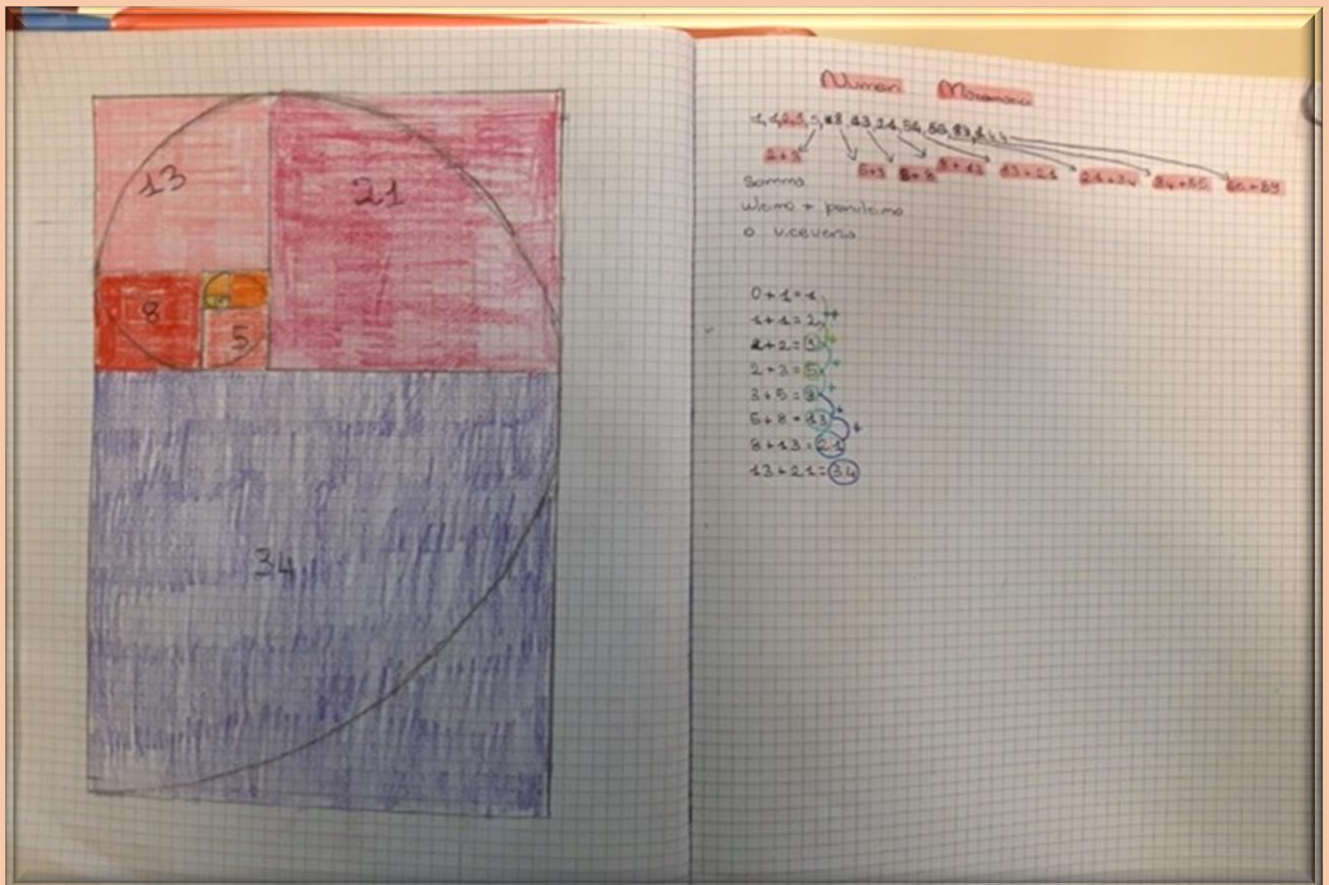 13
21
8
5
34
Numeri
1, 1, 2, 3, 5, 8, 13, 21, 34, 55, 89, 144
2+3
5+3 5+8 8+13 13+21 21+34 34+55 55+89
Somma
ultimo + penultimo
o viceversa
0+1=1
1+1=2
1+2=3
2+3=5
3+5=8
5+8=13
8+13=21
13+21=34